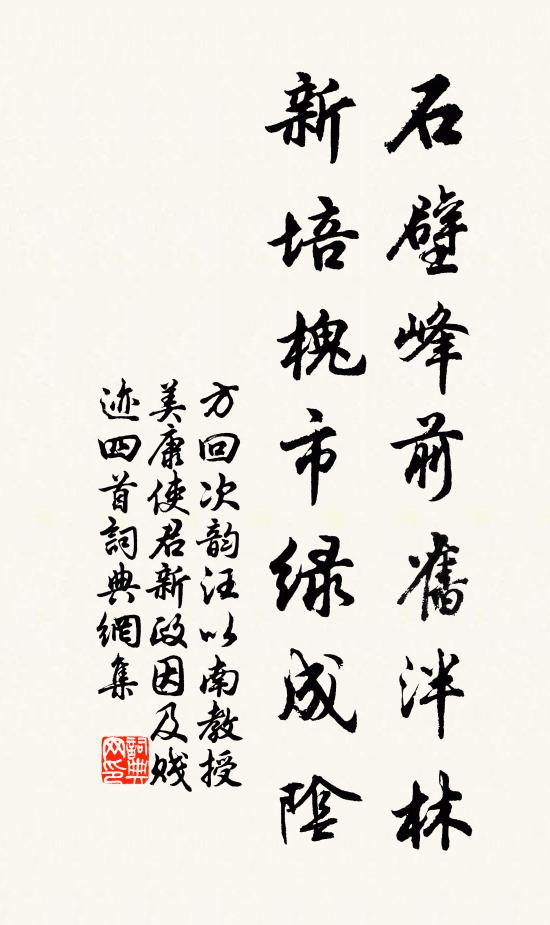 石壁峰前舊泮林
新培槐市緑成陰
方回次韵汪以南教授
美康使君新政因及贱
迹四首詞典網集
詞典网印